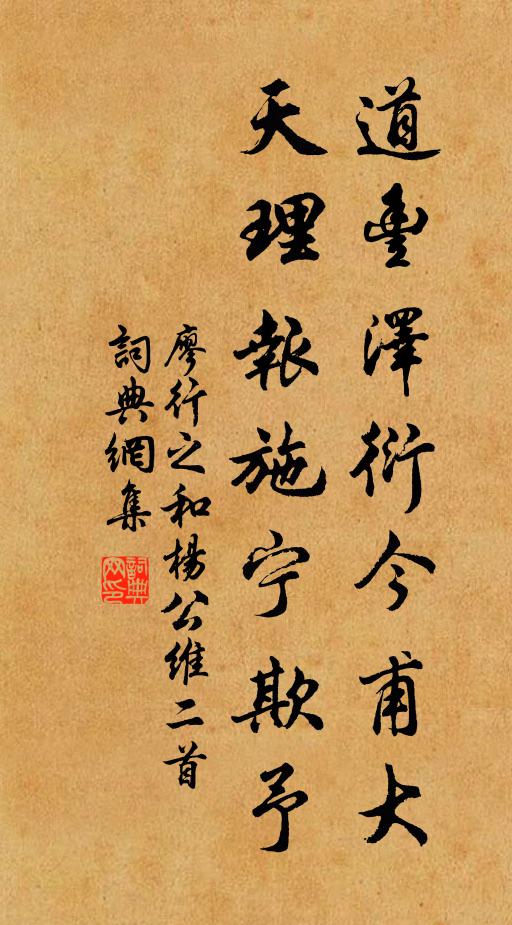 道豊澤衍今甫大
天理報施宁欺予
廖行之和楊公維二首
詞典網集
詞典网印